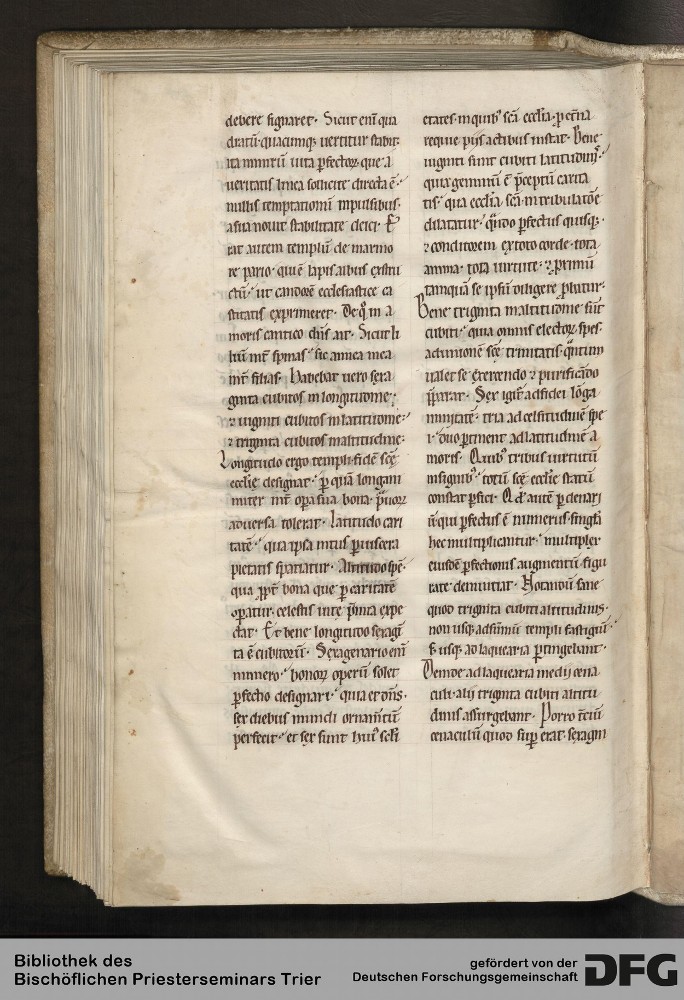 debere signaret. Sicut eni qua
dratū quacumq; uertitur stabit.
ita mimirū iuta pfectoꝝ que a
ueritatis linea sollicite directa ē.
nullis temptationū inpulsibus.
a sua nouit stabilitate deici. Er
rat autem templū de marmo
re pario. qui ē lapis albus exstru
ctū. ut candorē ecclesiastice ca
stitatis exprimeret. De q̄ in a
moris cantico dn̄s ait. Sicut li
liū int̄ spinas. sic amica mea
int̄ filias. Habebat uero sexa
ginta cubitos in longitudine.
⁊ uiginti cubitos in latitudine.
⁊ triginta cubitos in altitudine.
Longitudo ergo templi. fidē scē
ecclie designat. p quā longani
miter int̄ opa sua bona. prauoꝝ
aduersa tolerat. Latitudo cari
tatē. qua ipsa intus p uiscera
pietatis spatiatur. Altitudo spē.
qua ppt̄ bona que p caritatē
opatur. celestis uite pmia expe
ctat. Et bene longitudo sexagī
ta ē cubitorū. Sexagenario eni
numero. bonoꝝ operū solet
pfectio designari. quia et dn̄s.
sex diebus mundi ornam̄tū
perfecit. et sex sunt hui᾽ scli
etates. in quib᾽ scā ecclia. p et̄na
requie pijs actibus instat. Bene
uiginti sunt cubiti latitudinis.
quia geminū ē pceptū carita
tis. qua ecclia scā in tribulatōe
dilatatur. quando pfectus quisq;.
⁊ conditorem ex toto corde. tota
anima. tota uirtute. ⁊ primū
tamquā se ipsū diligere pbatur.
Bene triginta in altitudine sūt
cubiti. quia omnis electoꝝ spes.
ad uisionē scē trinitatis. q̄ntum
ualet se exercendo ⁊ purificādo
pparat. Sex igit̄ ad fidei lōga
nimitatē. tria ad celsitudinē spe
i. duo ptinent ad latitudinē a
moris. Quib᾽ tribus uirtutū
insignib᾽. totū scē ecclie statū
constat pfici. Qd̄ autē p denari
ū. qui pfectus ē numerus. singla
hec multiplicantur. multiplex
eiusdē pfectionis augmentū. figu
rate denuntiat. Notandū sane
quod triginta cubiti altitudinis.
non usq; ad sūmū templi fastigiū.
s; usq; ad laquearia ptingebant.
Deinde ad laquearia medij cena
culi. alij triginta cubiti altitu
dinis assurgebant. Porro t̄ciū
cenaculū quod sup erat. sexagin
Bibliothek des
Bischöflichen Priesterseminars Trier
gefördert von der
Deutschen Forschungsgemeinschaft
DFG